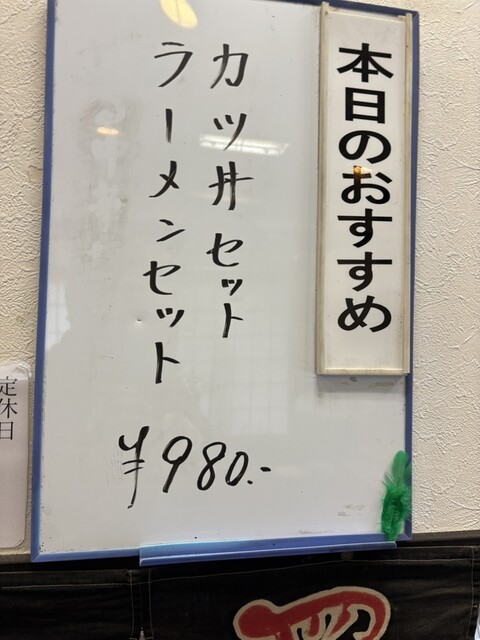 本日のおすすめ
カツ丼セット
ラーメンセット
¥980.-
定休日